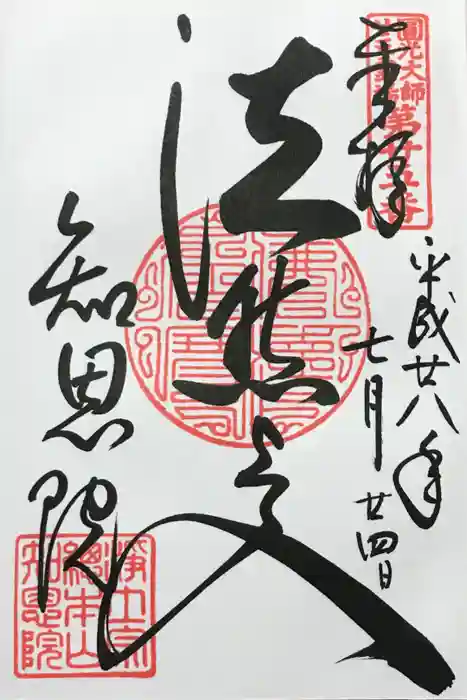 奉拝
圓光大師
第廿五番
平成廿八年
七月廿四日
法然上人
知恩院
浄土宗
總本山
知恩院